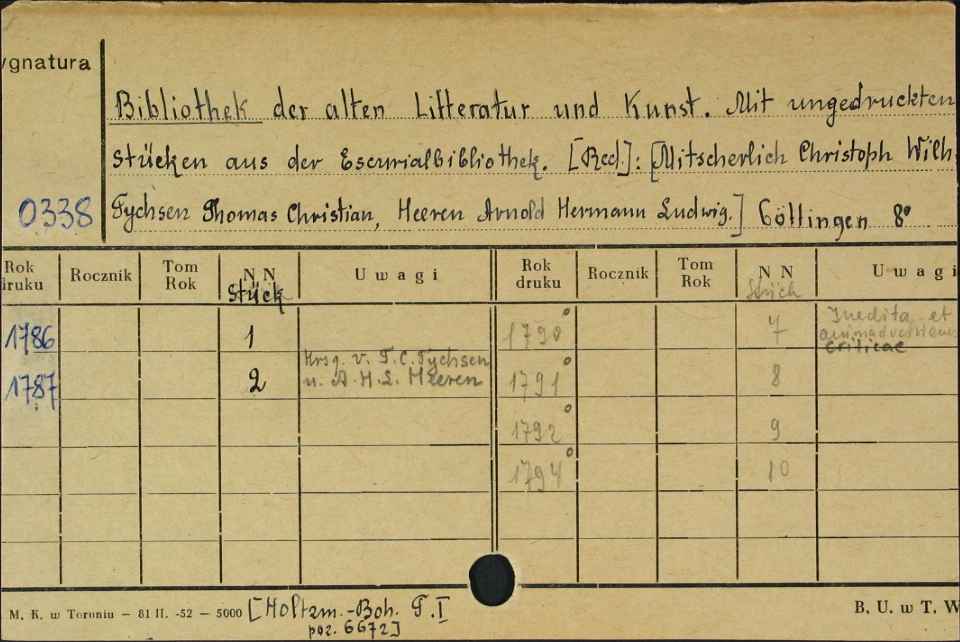 ygnatura
Bibliothek der alten Litteratur und Kunst. Mit ungedruckten
Stücken aus der Escurialbibliothek. [Red.]: [Mitscherlich Christoph Wilh.
0338 Tychsen Thomas Christian, Heeren Arnold Hermann Ludwig.] Göttingen 8°
Rok druku Rocznik Tom Rok N N Stück Uwagi Rok druku Rocznik Tom Rok N N Stück Uwagi
1786 1 1790° 7 Inedita et
animadversiones
criticae
1787 2 Hrsg. v. T. C. Tychsen
u. A. H. L. Heeren 1791° 8
1792° 9
1794° 10
M. K. w Toruniu — 81 II. -52 — 5000 [Holtzm.-Boh. T. I
poz. 6672]
B. U. w T. W